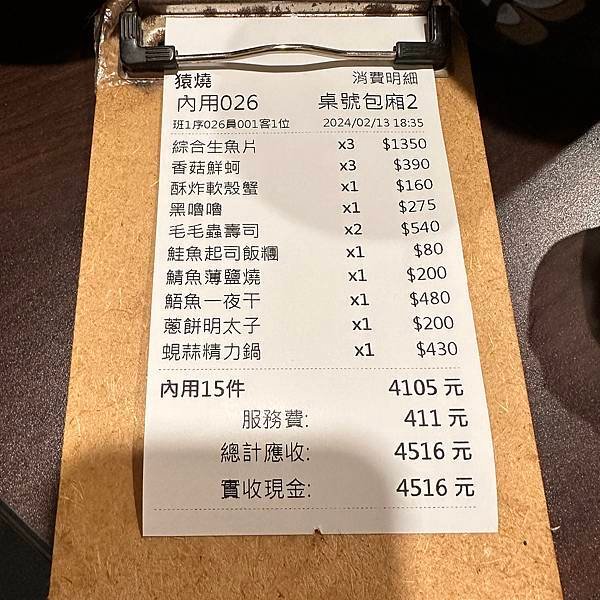 猿燒 消費明細
內用026 桌號包廂2
班1序026員001客1位 2024/02/13 18:35
綜合生魚片 x3 $1350
香菇鮮蚵 x3 $390
酥炸軟殼蟹 x1 $160
黑嚕嚕 x1 $275
毛毛蟲壽司 x2 $540
鮭魚起司飯糰 x1 $80
鯖魚薄鹽燒 x1 $200
鯃魚一夜干 x1 $480
蔥餅明太子 x1 $200
蜆蒜精力鍋 x1 $430
內用15件 4105 元
服務費: 411 元
總計應收: 4516 元
實收現金: 4516 元